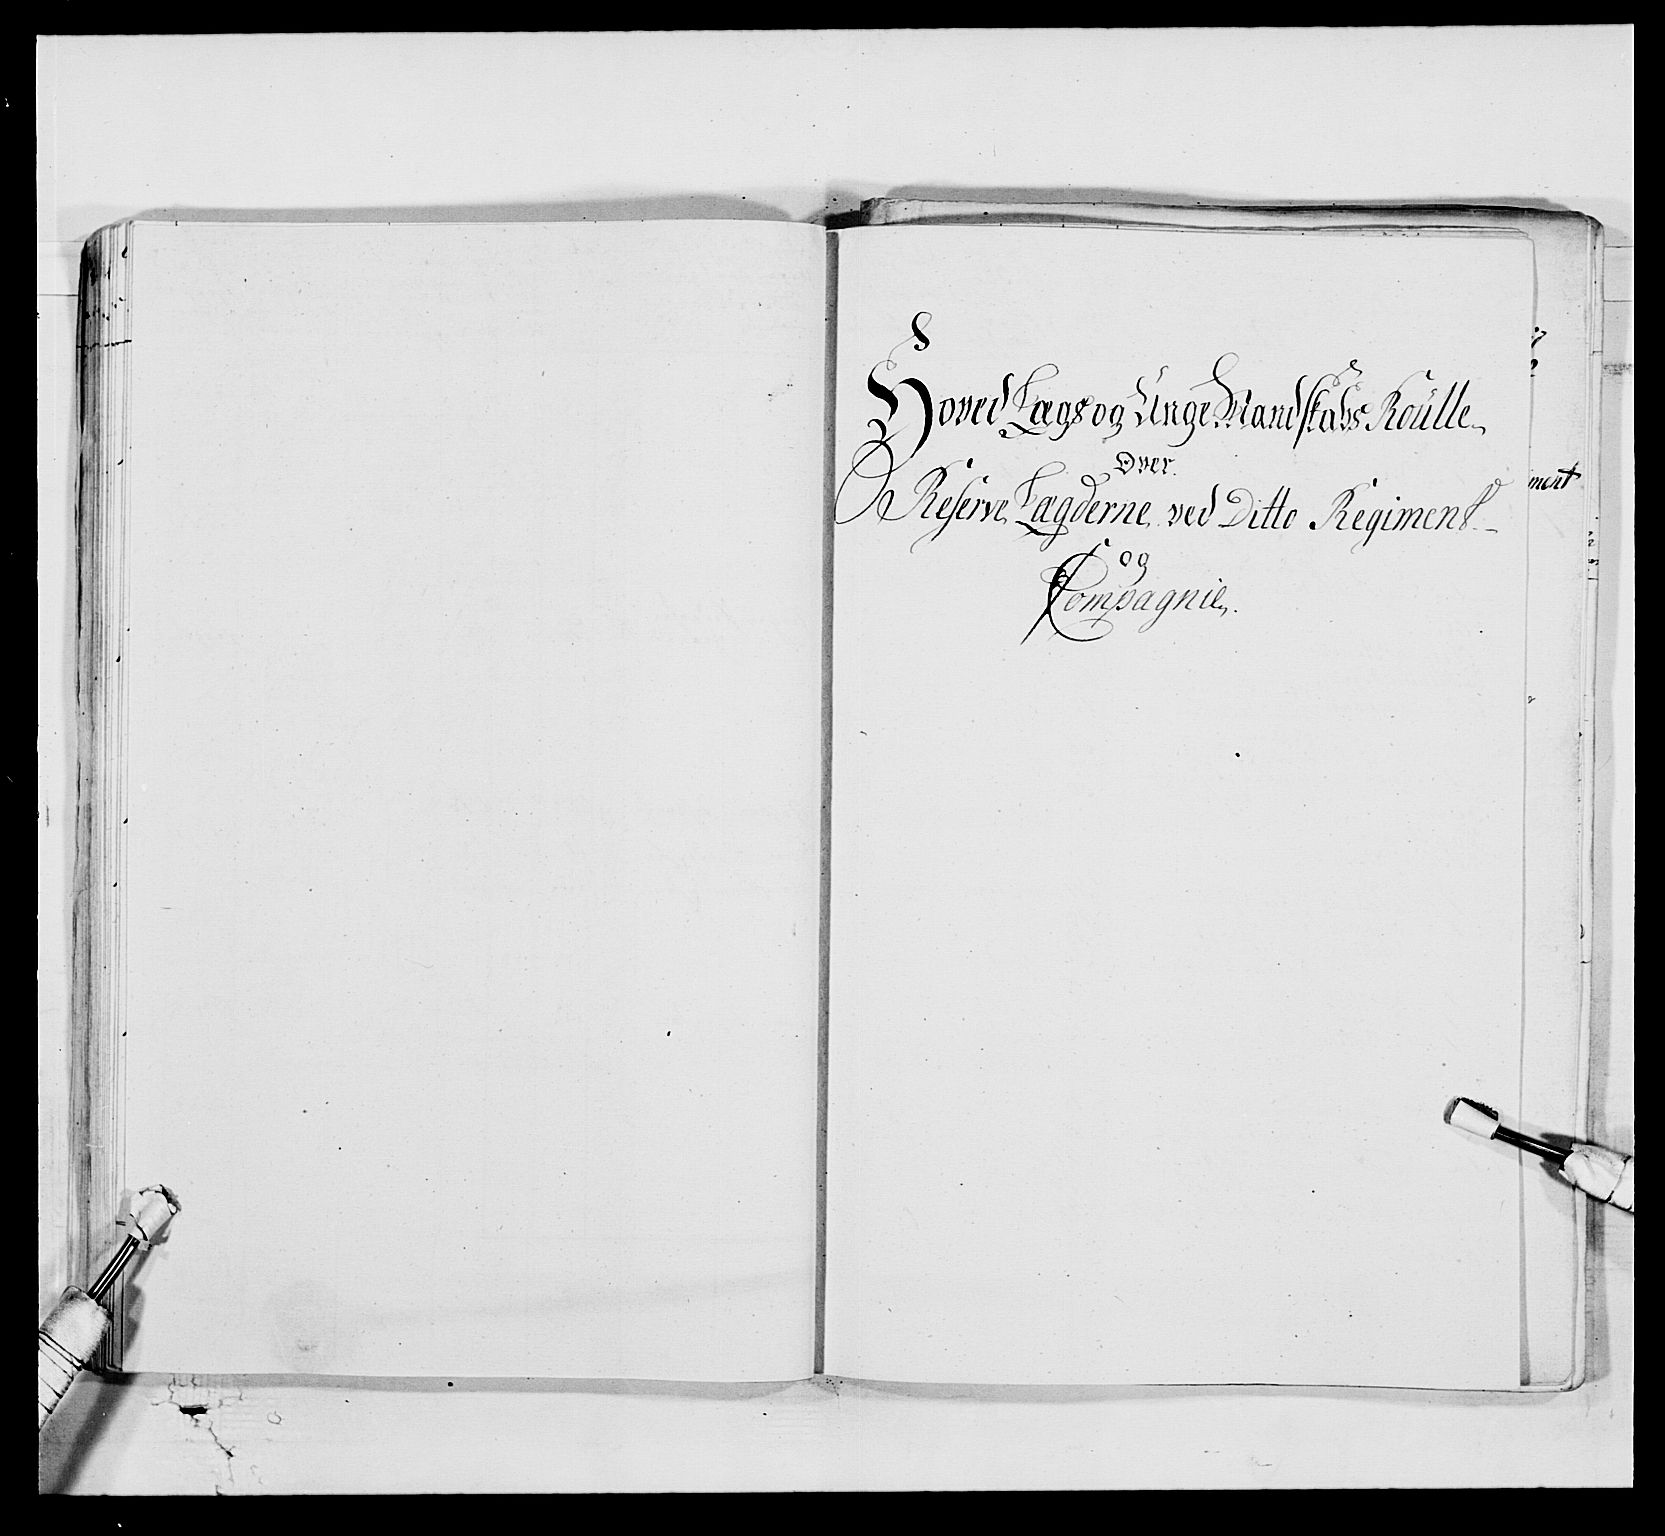 Hoved Lægs og Unge Mandskabs Roulle
Over
Reserve Lægderne ved Ditto Regiment
og
Compagnie.
ment